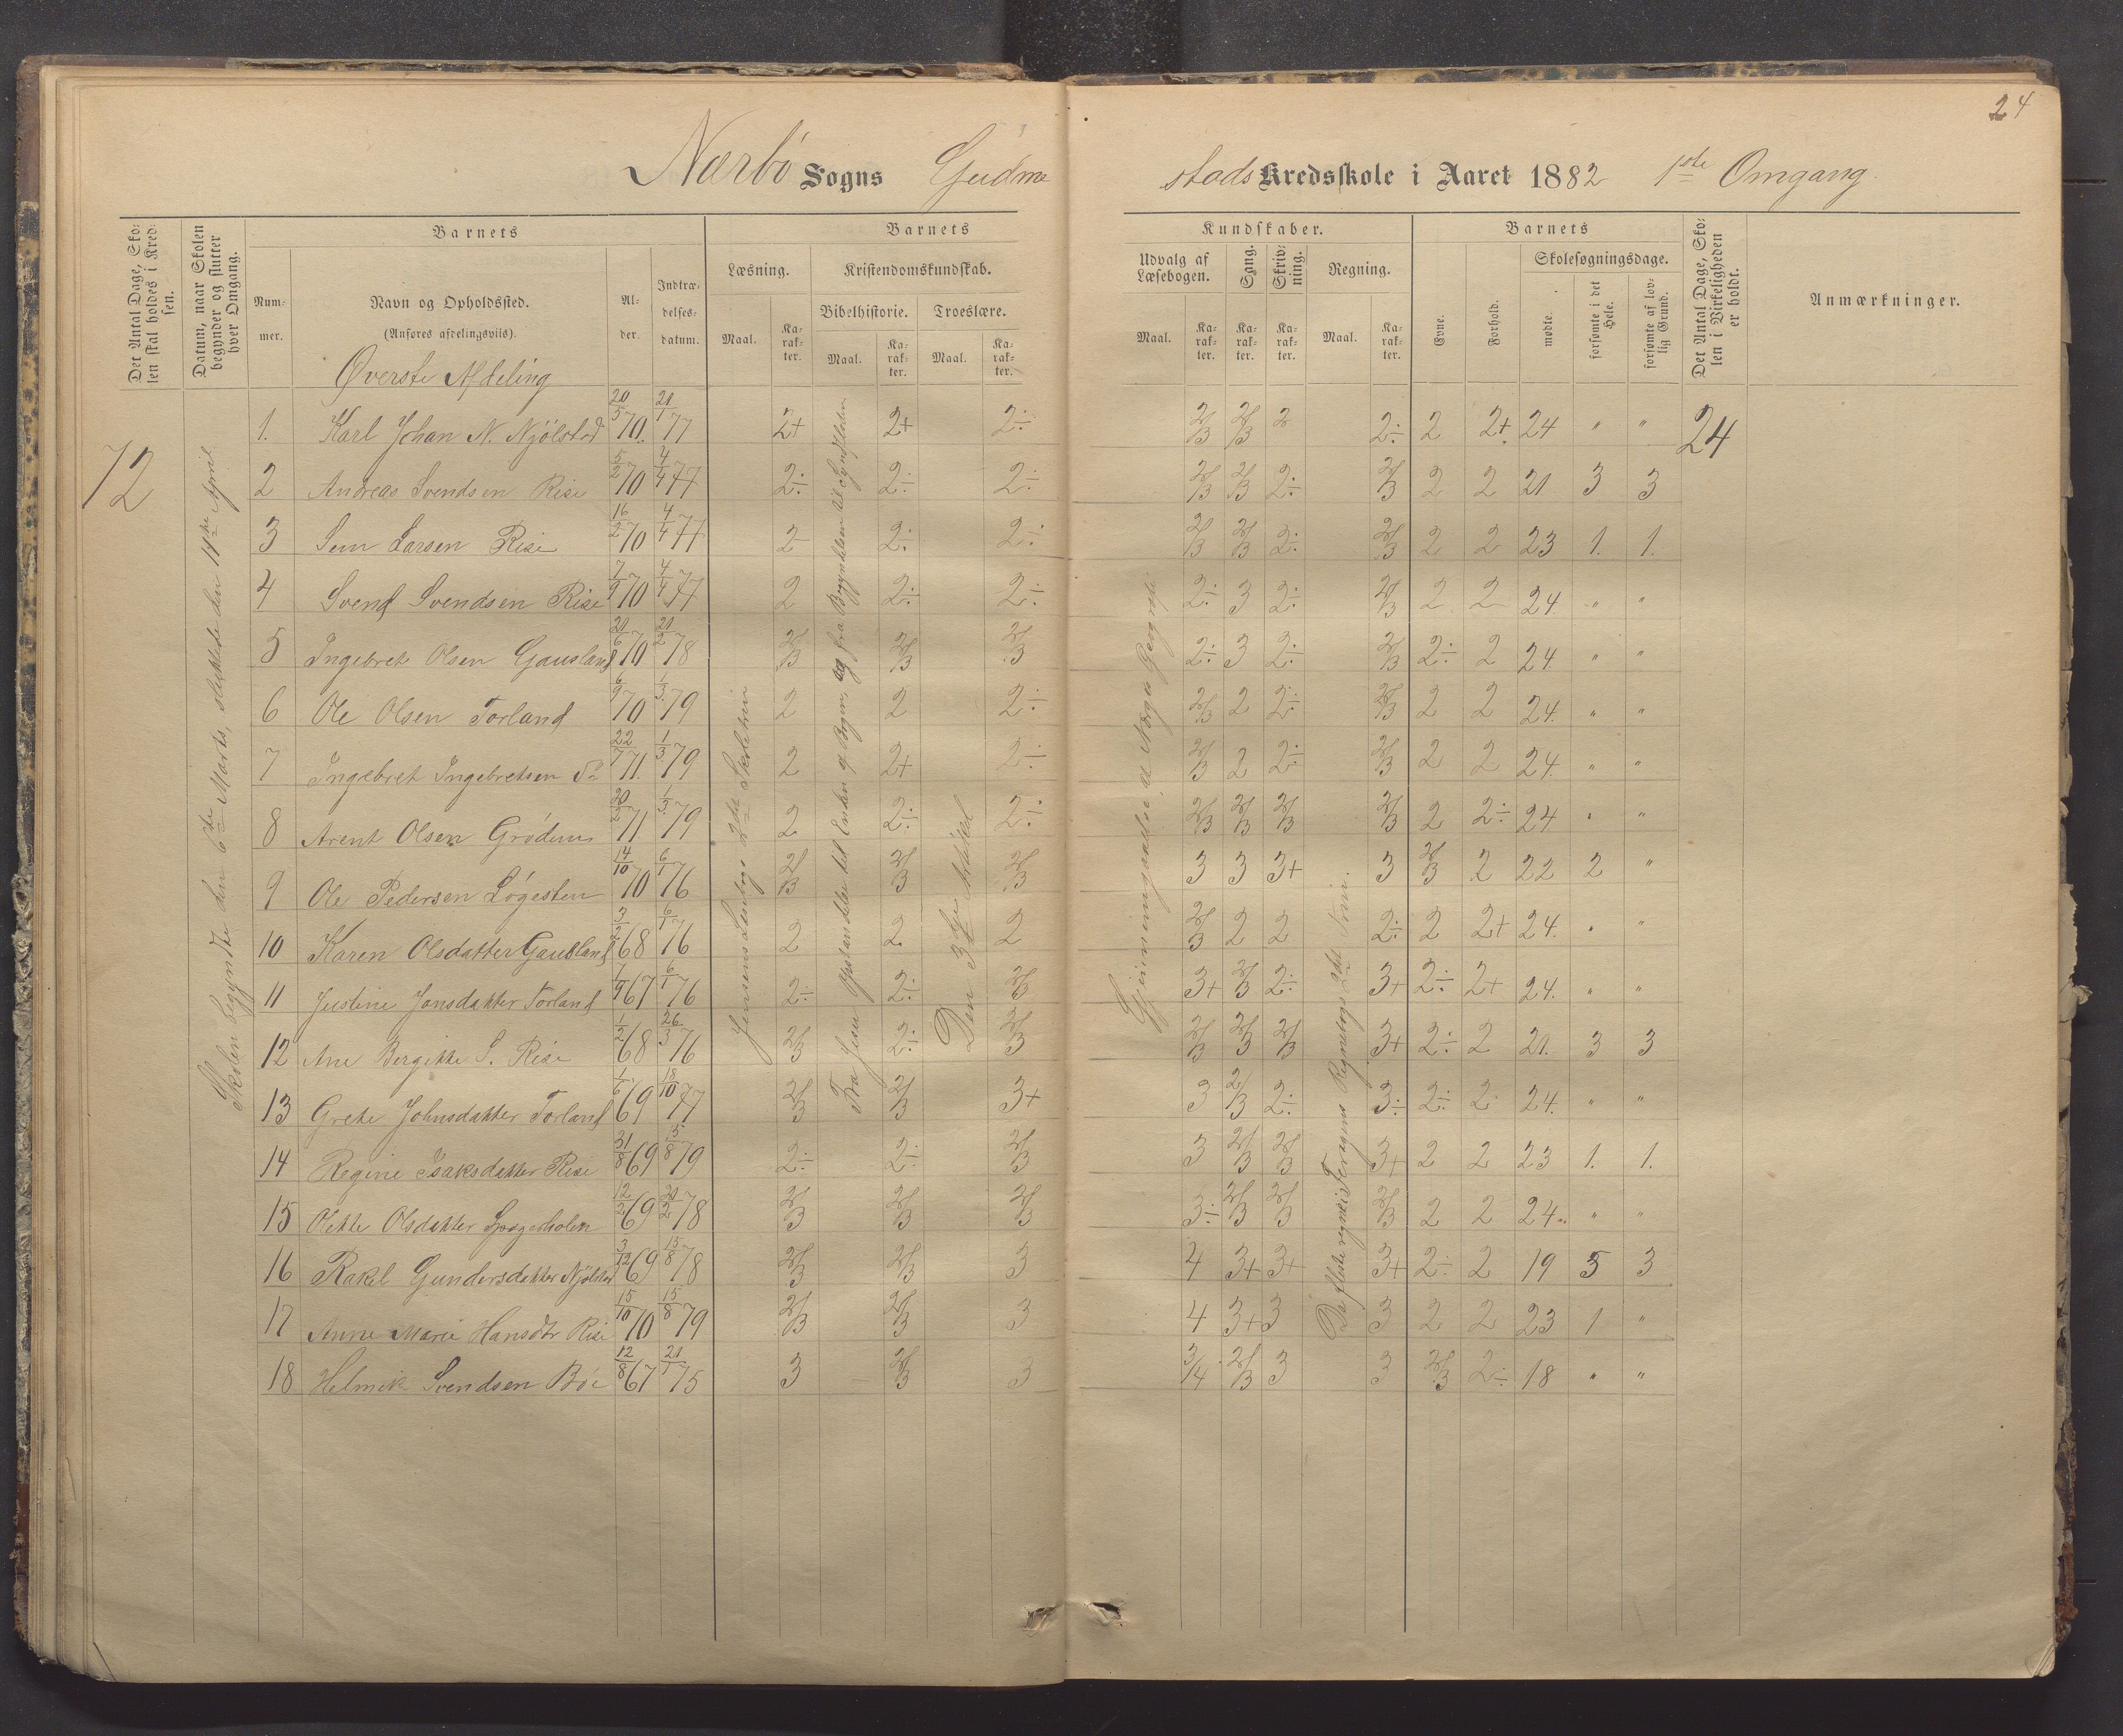 24
Nærbø Sogns Gudme
stads Kredsskole i Aaret 1882 1ste Omgang.
Det Antal Dage, Sko-
len skal holdes i Kred-
sen.
Datum, naar Skolen
begynder og slutter
hver Omgang.
Barnets
Num-
mer.
Navn og Opholdssted.
(Anføres afdelingsviis).
Al-
der.
Indtræ-
delses-
datum.
Barnets
Læsning.
Kristendomskundskab.
Bibelhistorie.
Troeslære.
Maal.
Ka-
rak-
ter.
Maal.
Ka-
rak-
ter.
Maal.
Ka-
rak-
ter.
Kundskaber.
Udvalg af
Læsebogen.
Sang.
Skriv-
ning.
Regning.
Maal.
Ka-
rak-
ter.
Ka-
rak-
ter.
Ka-
rak-
ter.
Maal.
Ka-
rak-
ter.
Barnets
Evne.
Forhold.
Skolesøgningsdage.
mødte.
forsømte i det
Hele.
forsømte af lov-
lig Grund.
Det Antal Dage, Sko-
len i Virkeligheden
er holdt.
Anmærkninger.
Øverste Afdeling
72
Skolen begyndte den 6te Marts, sluttede den 11te April
24
1. Karl Johan N. Njölstad 20/5 70. 21/1 77 2+ 2+ 2÷ 2/3 2/3 2 2÷ 2 2+ 24 " "
2 Andreas Svendsen Rise 5/2 70 4/4 77 2÷ 2÷ 2÷ 2/3 2/3 2÷ 2/3 2 2 21 3 3
3 Sem Larsen Rise 16/2 70 4/4 77 2 2÷ 2÷ 2/3 2/3 2÷ 2/3 2 2 23 1. 1.
4 Svend Svendsen Rise 7/9 70 4/4 77 2 2÷ 2÷ 2÷ 3 2÷ 2/3 2 2 24 " "
5 Ingebret Olsen Gausland 21/6 70 21/2 78 2/3 2/3 2/3 2÷ 3 2÷ 2/3 2÷ 2 24 " "
6 Ole Olsen Torland 6/9 70 1/3 79 2 2 2÷ 2/3 2 2÷ 2/3 2 2 24. " "
7 Ingebret Ingebretsen 22/7 71. 1/3 79 2 2+ 2÷ 2/3 2 2÷ 2/3 2 2 24. " "
8 Arent Olsen Grödem 71. 1/3 79 2 2÷ 2÷ 2/3 2/3 2/3 2/3 2 2÷ 24 " "
9 Ole Pedersen Lögesten 14/10 70 6/1 76 2/3 2/3 2/3 3 3 3+ 3 2/3 2 22 2 "
10 Karen Olsdatter Gausland 3/2 68 6/1 76 2 2 2 2/3 2 2 2÷ 2 2+ 24. " "
11 Justine Jonsdatter Torland 67 6/1 76 2÷ 2÷ 2/3 3+ 2/3 2÷ 3+ 2÷ 2+ 24. " "
12 Ane Bergitte S. Rise 1/2 68 26/3 76 2/3 2÷ 2/3 2/3 2/3 2/3 3+ 2÷ 2 21. 3 3
13 Grete Johnsdatter Torland 1/6 69 18/10 77 2/3 2/3 3+ 3 2/3 2÷ 3÷ 2÷ 2 24. " "
14 Regine Isaksdatter Rise 31/8 69 15/8 79 2÷ 2÷ 2/3 3 2/3 2/3 3+ 2 2 23 1. 1.
15 Olette Olsdatter 12/2 69 20/2 78 2/3 2/3 2/3 3÷ 2/3 2/3 2/3 2 2 24. " "
16 Rakel Gundersdatter Njölstad 3/12 69 15/8 78 2/3 2/3 3 4 3+ 3+ 3+ 2÷ 2 19 5 3
17 Anne Marie Hansdtr Rise 15/10 70 15/8 79 2/3 2/3 3 4 3+ 3 3 2 2 23 1 "
18 Helmik Svendsen Böe 12/8 67 21/1 75 3 2/3 3 3/4 2/3 3 3 2/3 2÷ 18 " "
Jensens Læsebogs 2det Skoletrin
Fra Jesu Opstandelse til Enden af Bogen og fra Begyndelsen til Syndfloden
Den 3die Artikel
Gjennemgaaelse af Norges Geografi
De fleste regne i Feragens Regnebogs 2det Trin.